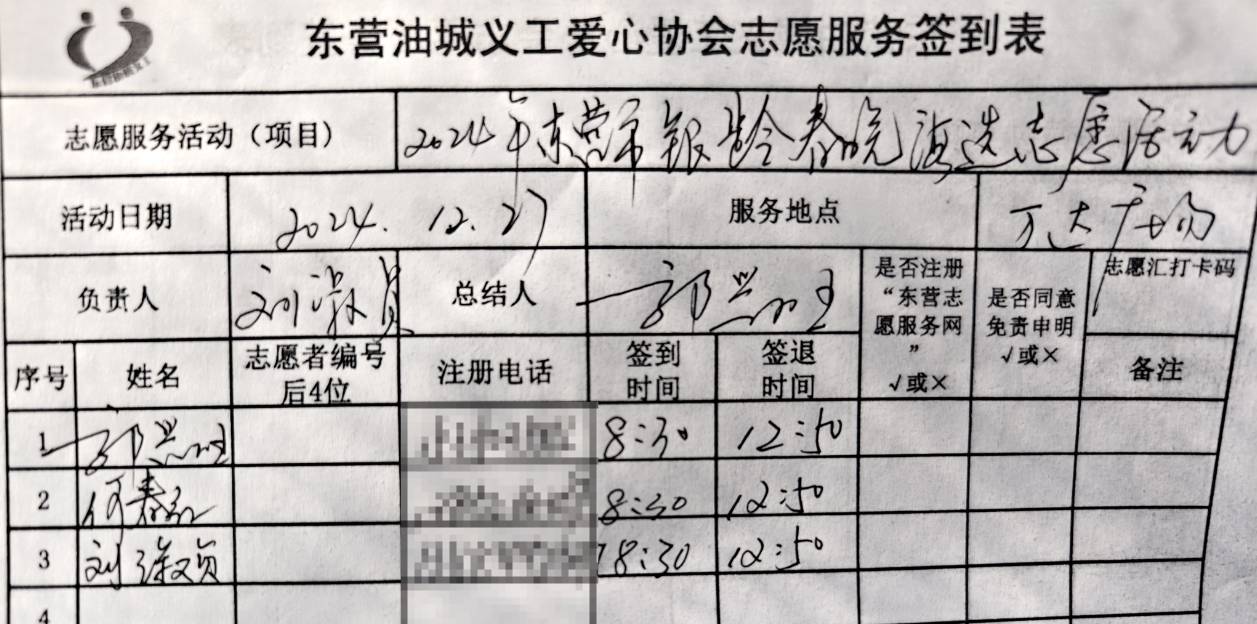 东营油城义工爱心协会志愿服务签到表
志愿服务活动（项目） 2024年东营市银龄春晚海选志愿活动
活动日期 2024.12.27 服务地点 万达广场
负责人 刘 总结人 郭兴 是否注册“东营志愿服务网”√或× 是否同意免责申明√或× 志愿汇打卡码
序号 姓名 志愿者编号后4位 注册电话 签到时间 签退时间 备注
1 郭兴 8:30 12:50
2 何春 8:30 12:50
3 刘 8:30 12:50
4